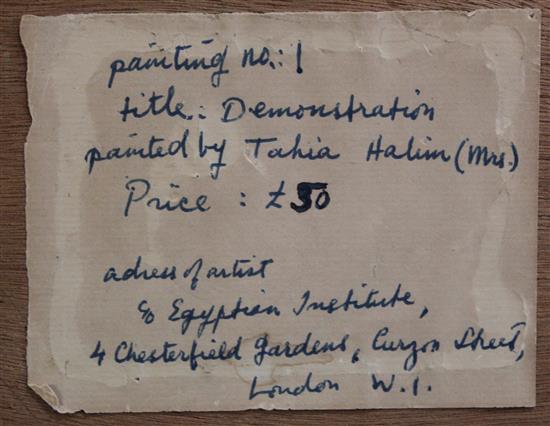 painting no.: 1
title.: Demonstration
painted by Tahia Halim (Mrs.)
Price : £50
adress of artist
c/o Egyptian Institute,
4 Chesterfield Gardens, Curzon Street,
London W.1.